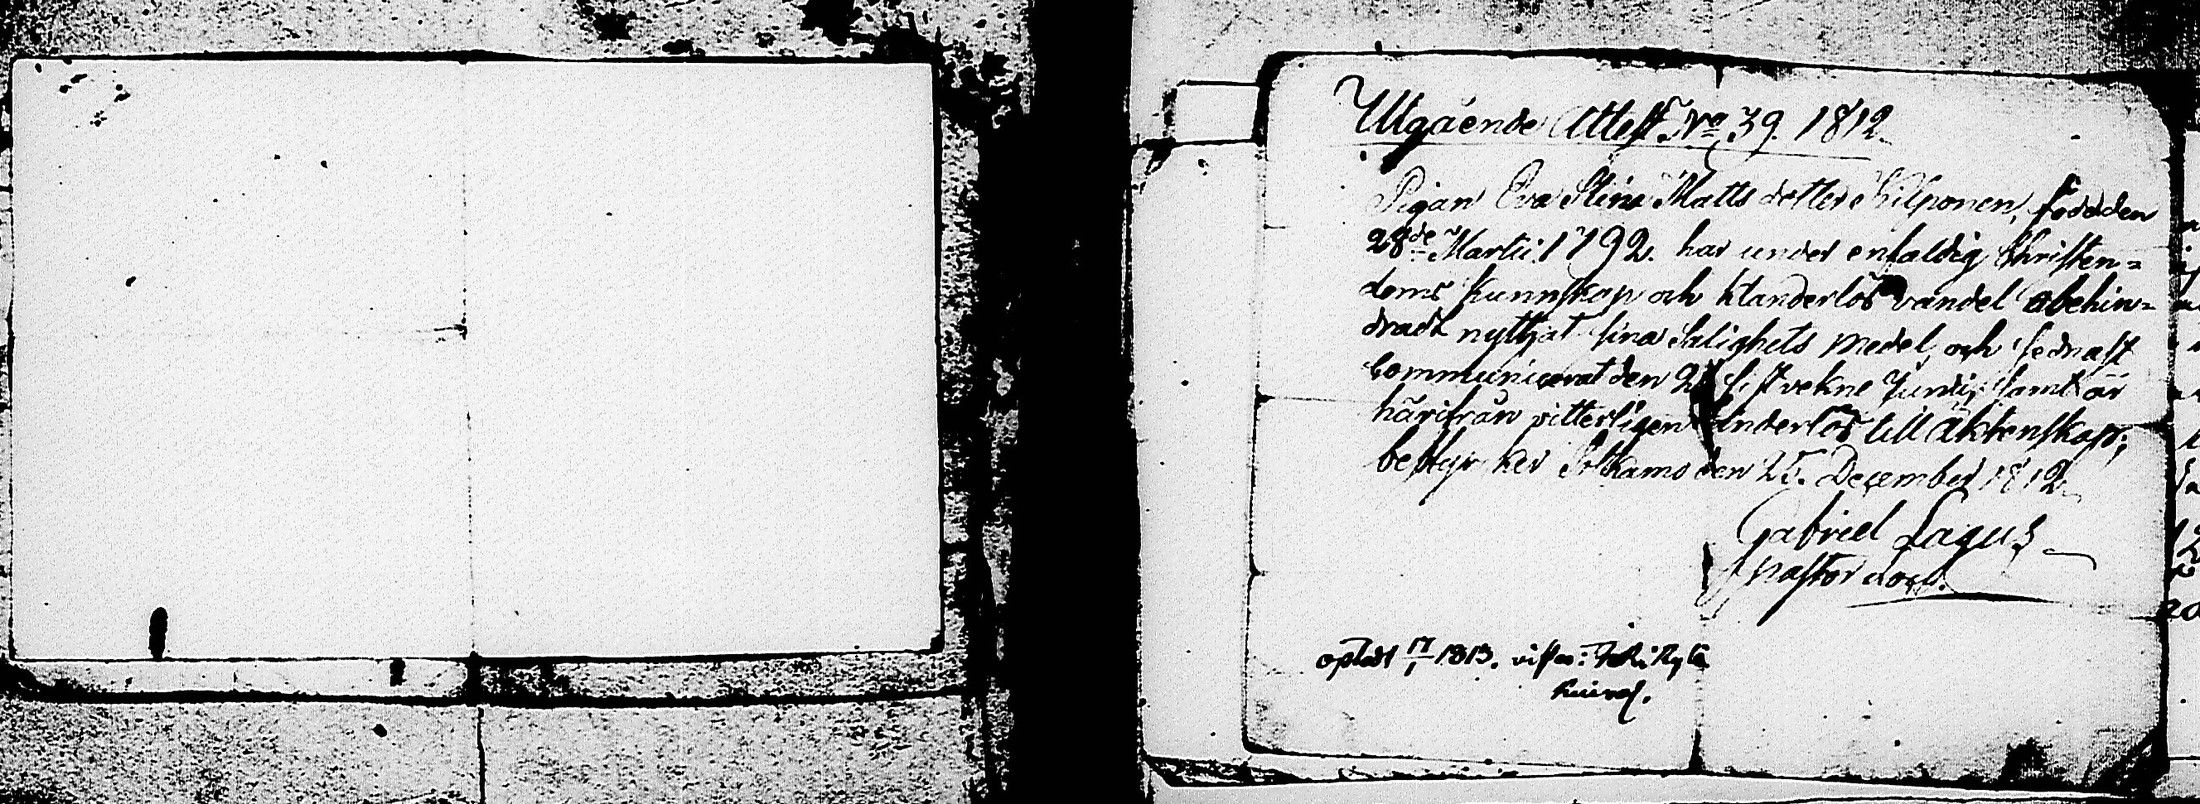 Utgående Attest No 39. 1812.
Pigan Eva Stina Matts dotter Hilponen, född den
28de Martii 1792. har under enfaldig Christen=
doms kunnskap och klanderlös vandel obehin=
dradt nyttjat sina Salighets medel, och sednast
Communicerat den sistvekne Junii, samt är
härifrån vitterligen hinderlös till Äktenskap;
betygar Sotkamo den 25. December 1812.
Gabriel Lagus
Pastor
oplöst 17/1 1813.